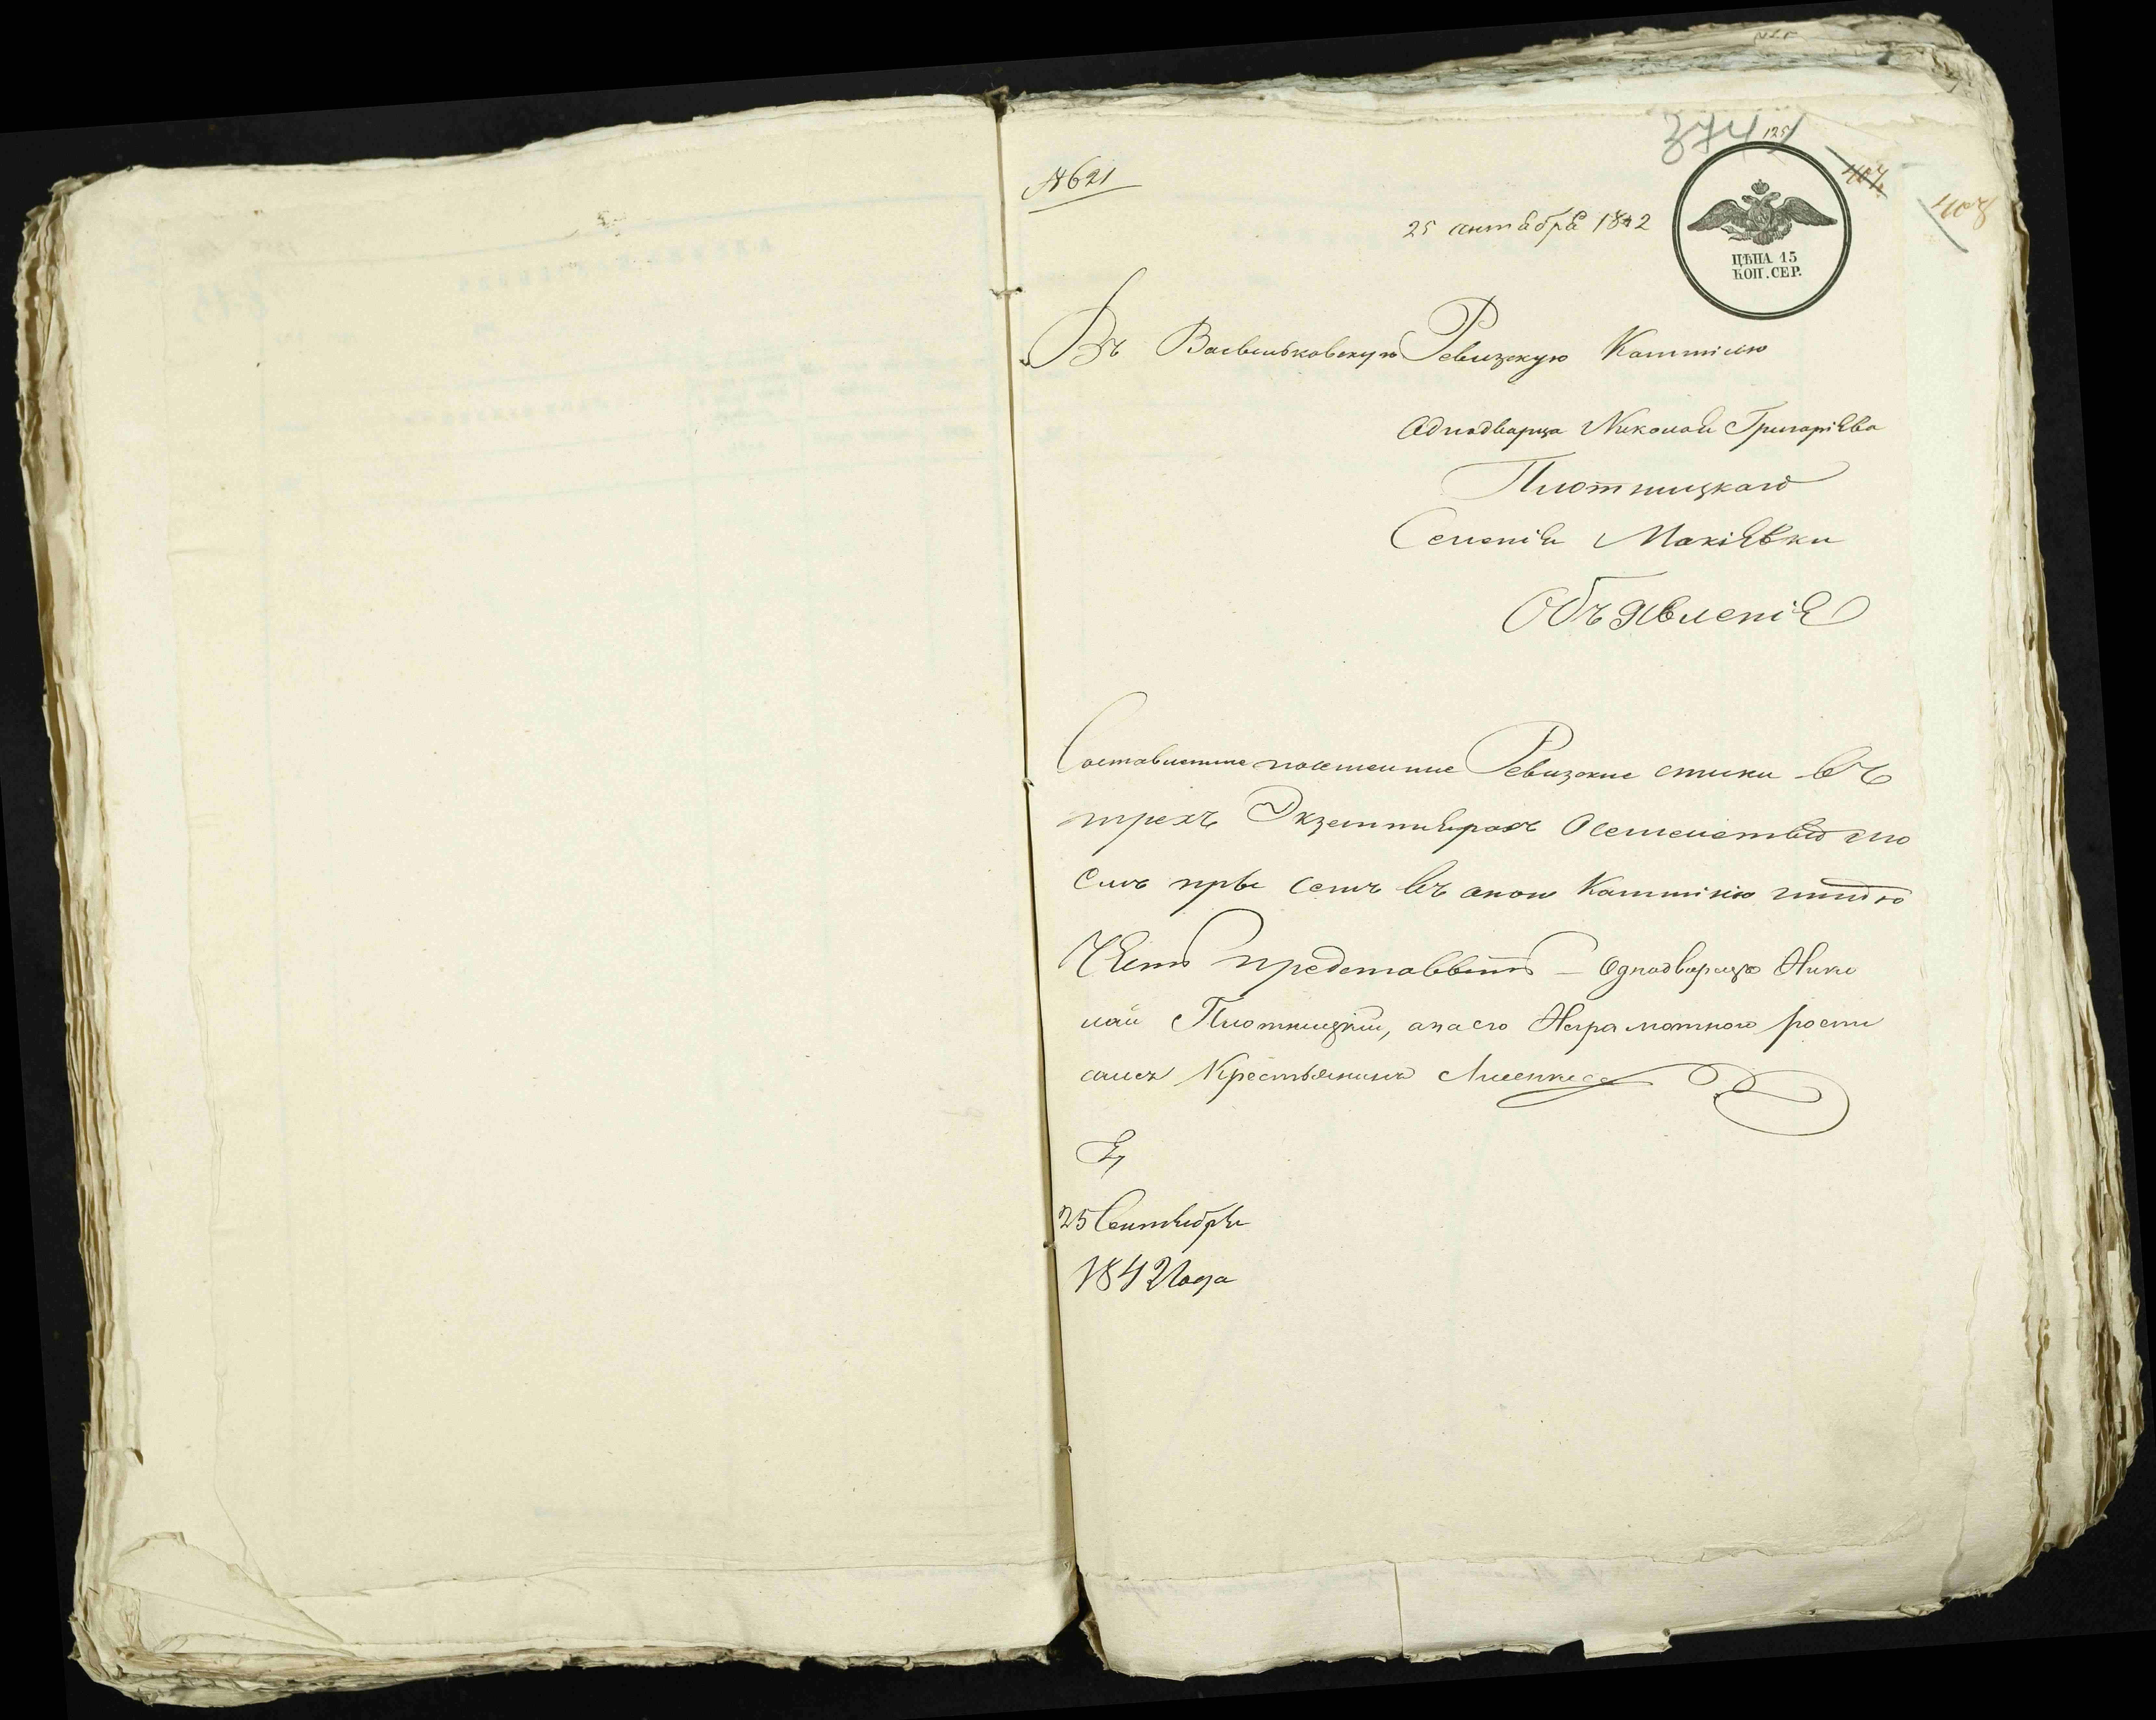 374
125
407
408
№ 621
25 сентября 1842
ЦѢНА 15
КОП. СЕР.
Въ Васильковскую Ревизкую Коммисию
Однодворца Николая Григорiева
Плотницкаго
Селенiя Макiевки
Объявленiе
Составленные посемейные Ревизские списки въ
трехъ Экземплярахъ Осемействѣ мо
емъ при семъ въ оною Коммисiю имѣю
Честь представить — Однодворецъ Нико
лай Плотницкiй, анаего Неграмотнаго роспи
сался Крестьянинъ
25 Сентября
1842 Года